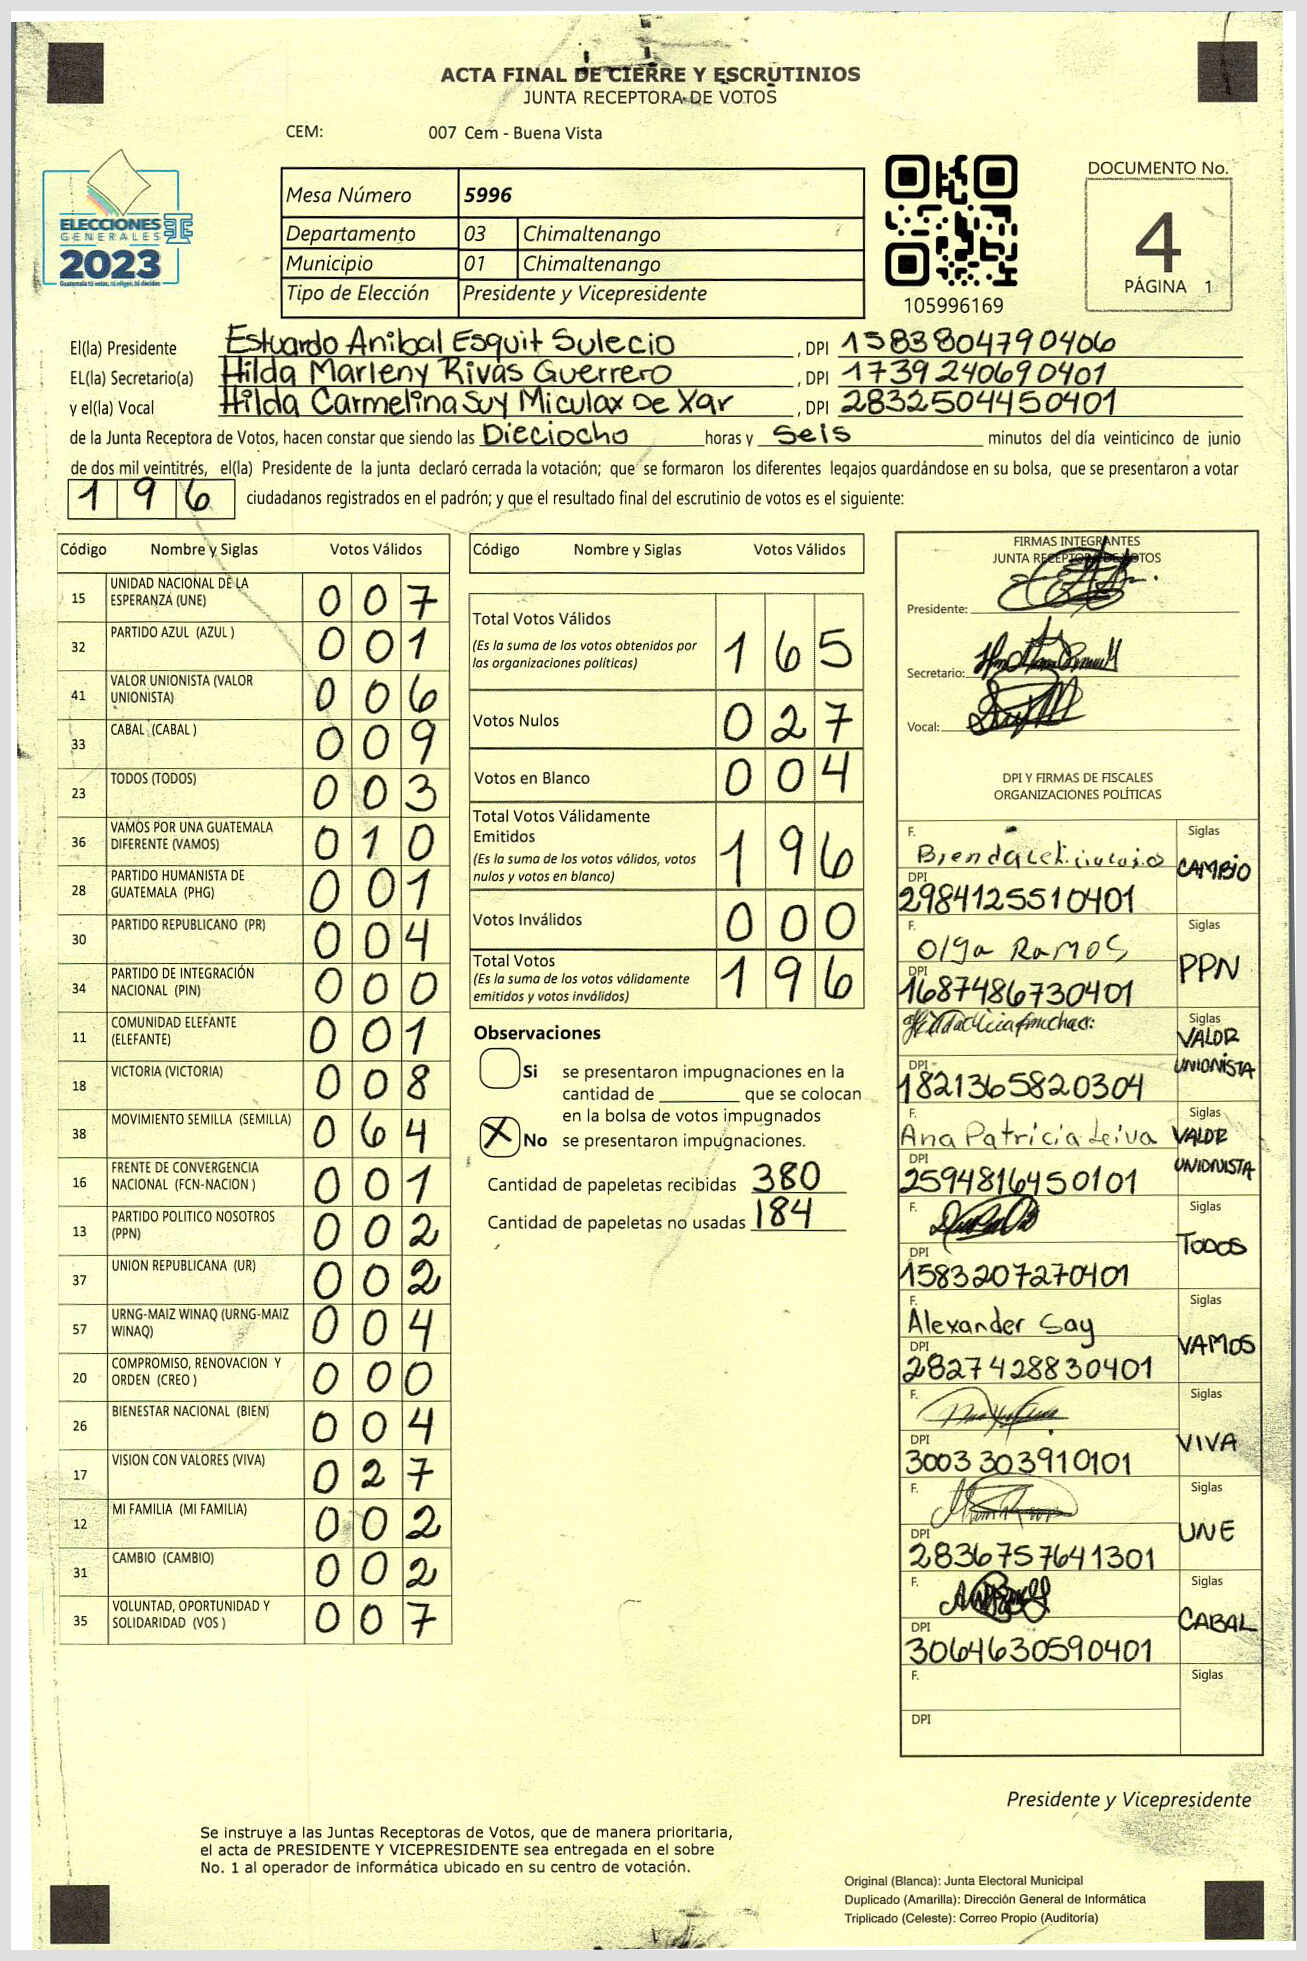 ACTA FINAL DE CIERRE Y ESCRUTINIOS
JUNTA RECEPTORA DE VOTOS
CEM: 007 Cem - Buena Vista
ELECCIONES
GENERALES
2023
Guatemala tú votas, tú eliges, tú decides
Mesa Número 5996
Departamento 03 Chimaltenango
Municipio 01 Chimaltenango
Tipo de Elección Presidente y Vicepresidente
105996169
DOCUMENTO No.
4
PÁGINA 1
El(la) Presidente Estuardo Anibal Esquit Sulecio, DPI 1583804790406
EL(la) Secretario(a) Hilda Marleny Rivas Guerrero, DPI 1739240690401
y el(la) Vocal Hilda Carmelina Suy Miculax De Xar, DPI 2832504450401
de la Junta Receptora de Votos, hacen constar que siendo las Dieciocho horas y Seis minutos del día veinticinco de junio
de dos mil veintitrés, el(la) Presidente de la junta declaró cerrada la votación; que se formaron los diferentes legajos guardándose en su bolsa, que se presentaron a votar
196 ciudadanos registrados en el padrón; y que el resultado final del escrutinio de votos es el siguiente:
Código Nombre y Siglas Votos Válidos
15 UNIDAD NACIONAL DE LA ESPERANZA (UNE) 007
32 PARTIDO AZUL (AZUL ) 001
41 VALOR UNIONISTA (VALOR UNIONISTA) 006
33 CABAL (CABAL ) 009
23 TODOS (TODOS) 003
36 VAMOS POR UNA GUATEMALA DIFERENTE (VAMOS) 010
28 PARTIDO HUMANISTA DE GUATEMALA (PHG) 001
30 PARTIDO REPUBLICANO (PR) 004
34 PARTIDO DE INTEGRACIÓN NACIONAL (PIN) 000
11 COMUNIDAD ELEFANTE (ELEFANTE) 001
18 VICTORIA (VICTORIA) 008
38 MOVIMIENTO SEMILLA (SEMILLA) 064
16 FRENTE DE CONVERGENCIA NACIONAL (FCN-NACION ) 001
13 PARTIDO POLITICO NOSOTROS (PPN) 002
37 UNION REPUBLICANA (UR) 002
57 URNG-MAIZ WINAQ (URNG-MAIZ WINAQ) 004
20 COMPROMISO, RENOVACION Y ORDEN (CREO ) 000
26 BIENESTAR NACIONAL (BIEN) 004
17 VISION CON VALORES (VIVA) 027
12 MI FAMILIA (MI FAMILIA) 002
31 CAMBIO (CAMBIO) 002
35 VOLUNTAD, OPORTUNIDAD Y SOLIDARIDAD (VOS ) 007
Código Nombre y Siglas Votos Válidos
Total Votos Válidos 165
(Es la suma de los votos obtenidos por
las organizaciones políticas)
Votos Nulos 027
Votos en Blanco 004
Total Votos Válidamente
Emitidos 196
(Es la suma de los votos válidos, votos
nulos y votos en blanco)
Votos Inválidos 000
Total Votos 196
(Es la suma de los votos válidamente
emitidos y votos inválidos)
Observaciones
Si se presentaron impugnaciones en la
cantidad de ________ que se colocan
en la bolsa de votos impugnados
X No se presentaron impugnaciones.
Cantidad de papeletas recibidas 380
Cantidad de papeletas no usadas 184
FIRMAS INTEGRANTES
JUNTA RECEPTORA DE VOTOS
Presidente:
Secretario:
Vocal:
DPI Y FIRMAS DE FISCALES
ORGANIZACIONES POLÍTICAS
F. Brenda Siglas CAMBIO
DPI 2984125510401
F. Olga Ramos Siglas PPN
DPI 1687486730401
Siglas VALOR UNIONISTA
DPI 1821365820304
F. Ana Patricia Leiva Siglas VALOR UNIONISTA
DPI 2594816450101
F. Siglas TODOS
DPI 1583207270401
F. Alexander Say Siglas VAMOS
DPI 2827428830401
F. Siglas VIVA
DPI 3003303910101
F. Siglas UNE
DPI 2836757641301
F. Siglas CABAL
DPI 3064630590401
F. Siglas
DPI
Presidente y Vicepresidente
Se instruye a las Juntas Receptoras de Votos, que de manera prioritaria,
el acta de PRESIDENTE Y VICEPRESIDENTE sea entregada en el sobre
No. 1 al operador de informática ubicado en su centro de votación.
Original (Blanca): Junta Electoral Municipal
Duplicado (Amarilla): Dirección General de Informática
Triplicado (Celeste): Correo Propio (Auditoría)